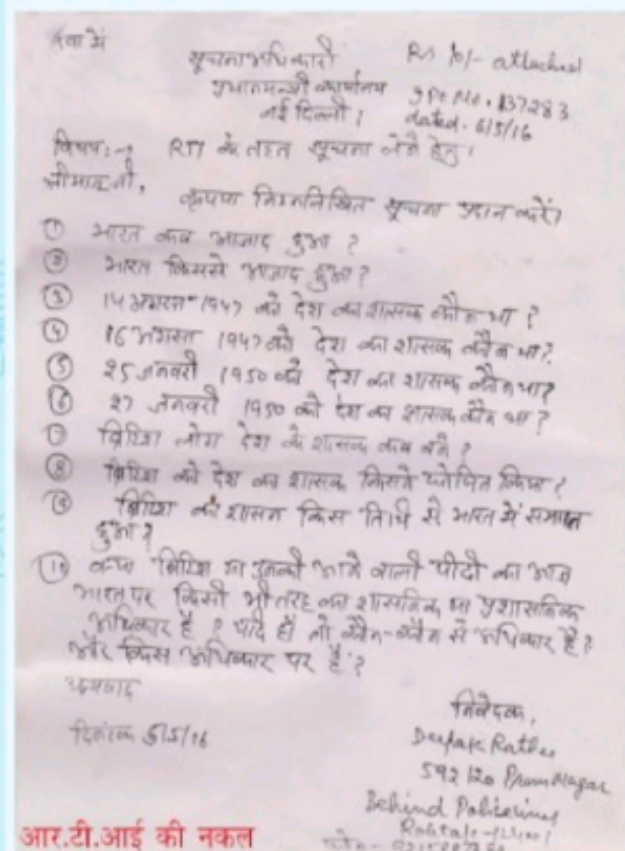 सेवा में
सूचना अधिकारी Rs 10/- attached
प्रधानमन्त्री कार्यालय IPO No. 137283
नई दिल्ली। dated. 6/5/16
विषय:- RTI के तहत सूचना लेने हेतु।
श्रीमान जी,
कृपया निम्नलिखित सूचना प्रदान करें।
① भारत कब आजाद हुआ ?
② भारत किससे आजाद हुआ ?
③ 14 अगस्त 1947 को देश का शासक कौन था ?
④ 16 अगस्त 1947 को देश का शासक कौन था ?
⑤ 25 जनवरी 1950 को देश का शासक कौन था ?
⑥ 27 जनवरी 1950 को देश का शासक कौन था ?
⑦ ब्रिटिश लोग देश के शासक कब बने ?
⑧ ब्रिटिश को देश का शासक किसने घोषित किया ?
⑨ ब्रिटिश का शासन किस तिथि से भारत में समाप्त
हुआ ?
⑩ क्या ब्रिटिश या उनकी आने वाली पीढी का आज
भारत पर किसी भी तरह का शासनिक या प्रशासनिक
अधिकार है ? यदि हाँ तो कौन-कौन से अधिकार है ?
और किस अधिकार पर है ?
धन्यवाद
दिनांक 5/5/16
निवेदक,
Deepak Rathee
592/20 Prem Nagar
Behind Police Lines
Rohtak-124001
आर.टी.आई की नकल